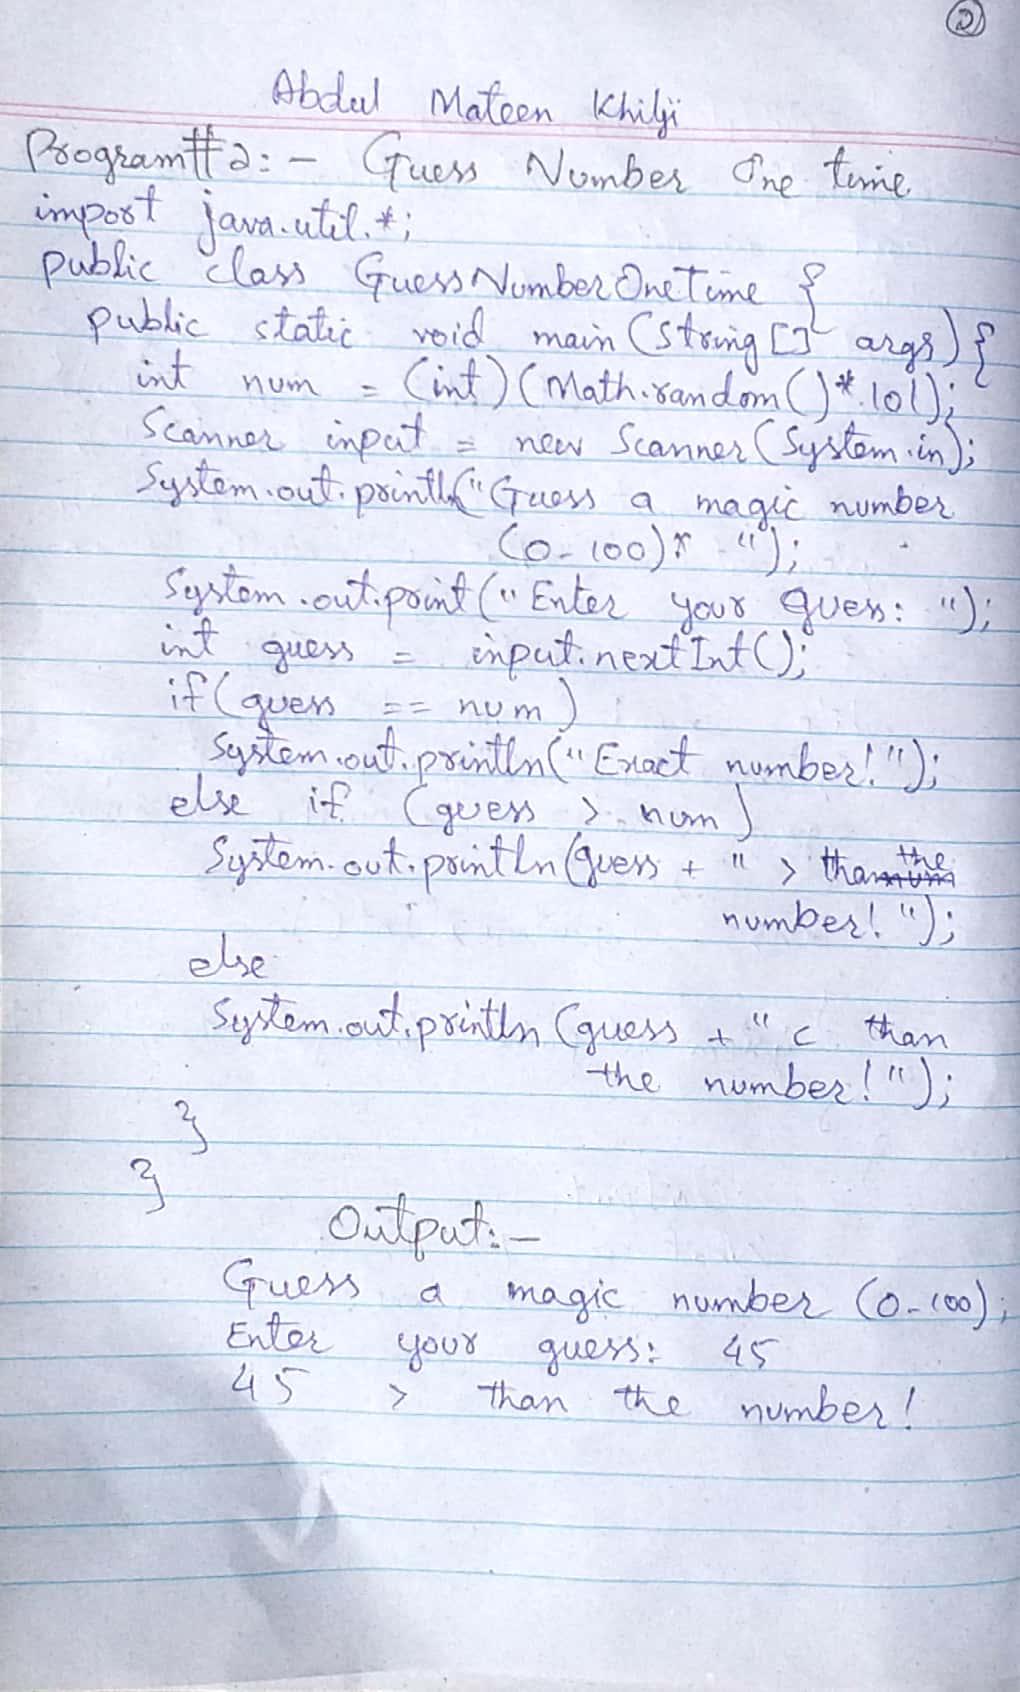 2
Abdul Mateen Khilji
Program#2:- Guess Number One time
import java.util.*;
public class GuessNumberOneTime {
public static void main(String[] args){
int num = (int)(Math.random()*101);
Scanner input = new Scanner(System.in);
System.out.println("Guess a magic number
(0-100) ");
System.out.print("Enter your guess: ");
int guess = input.nextInt();
if(guess == num)
System.out.println("Exact number!");
else if (guess > num)
System.out.println(guess + " > than the
number!");
else
System.out.println(guess + " < than
the number!");
}
}
Output:-
Guess a magic number (0-100);
Enter your guess: 45
45 > than the number!